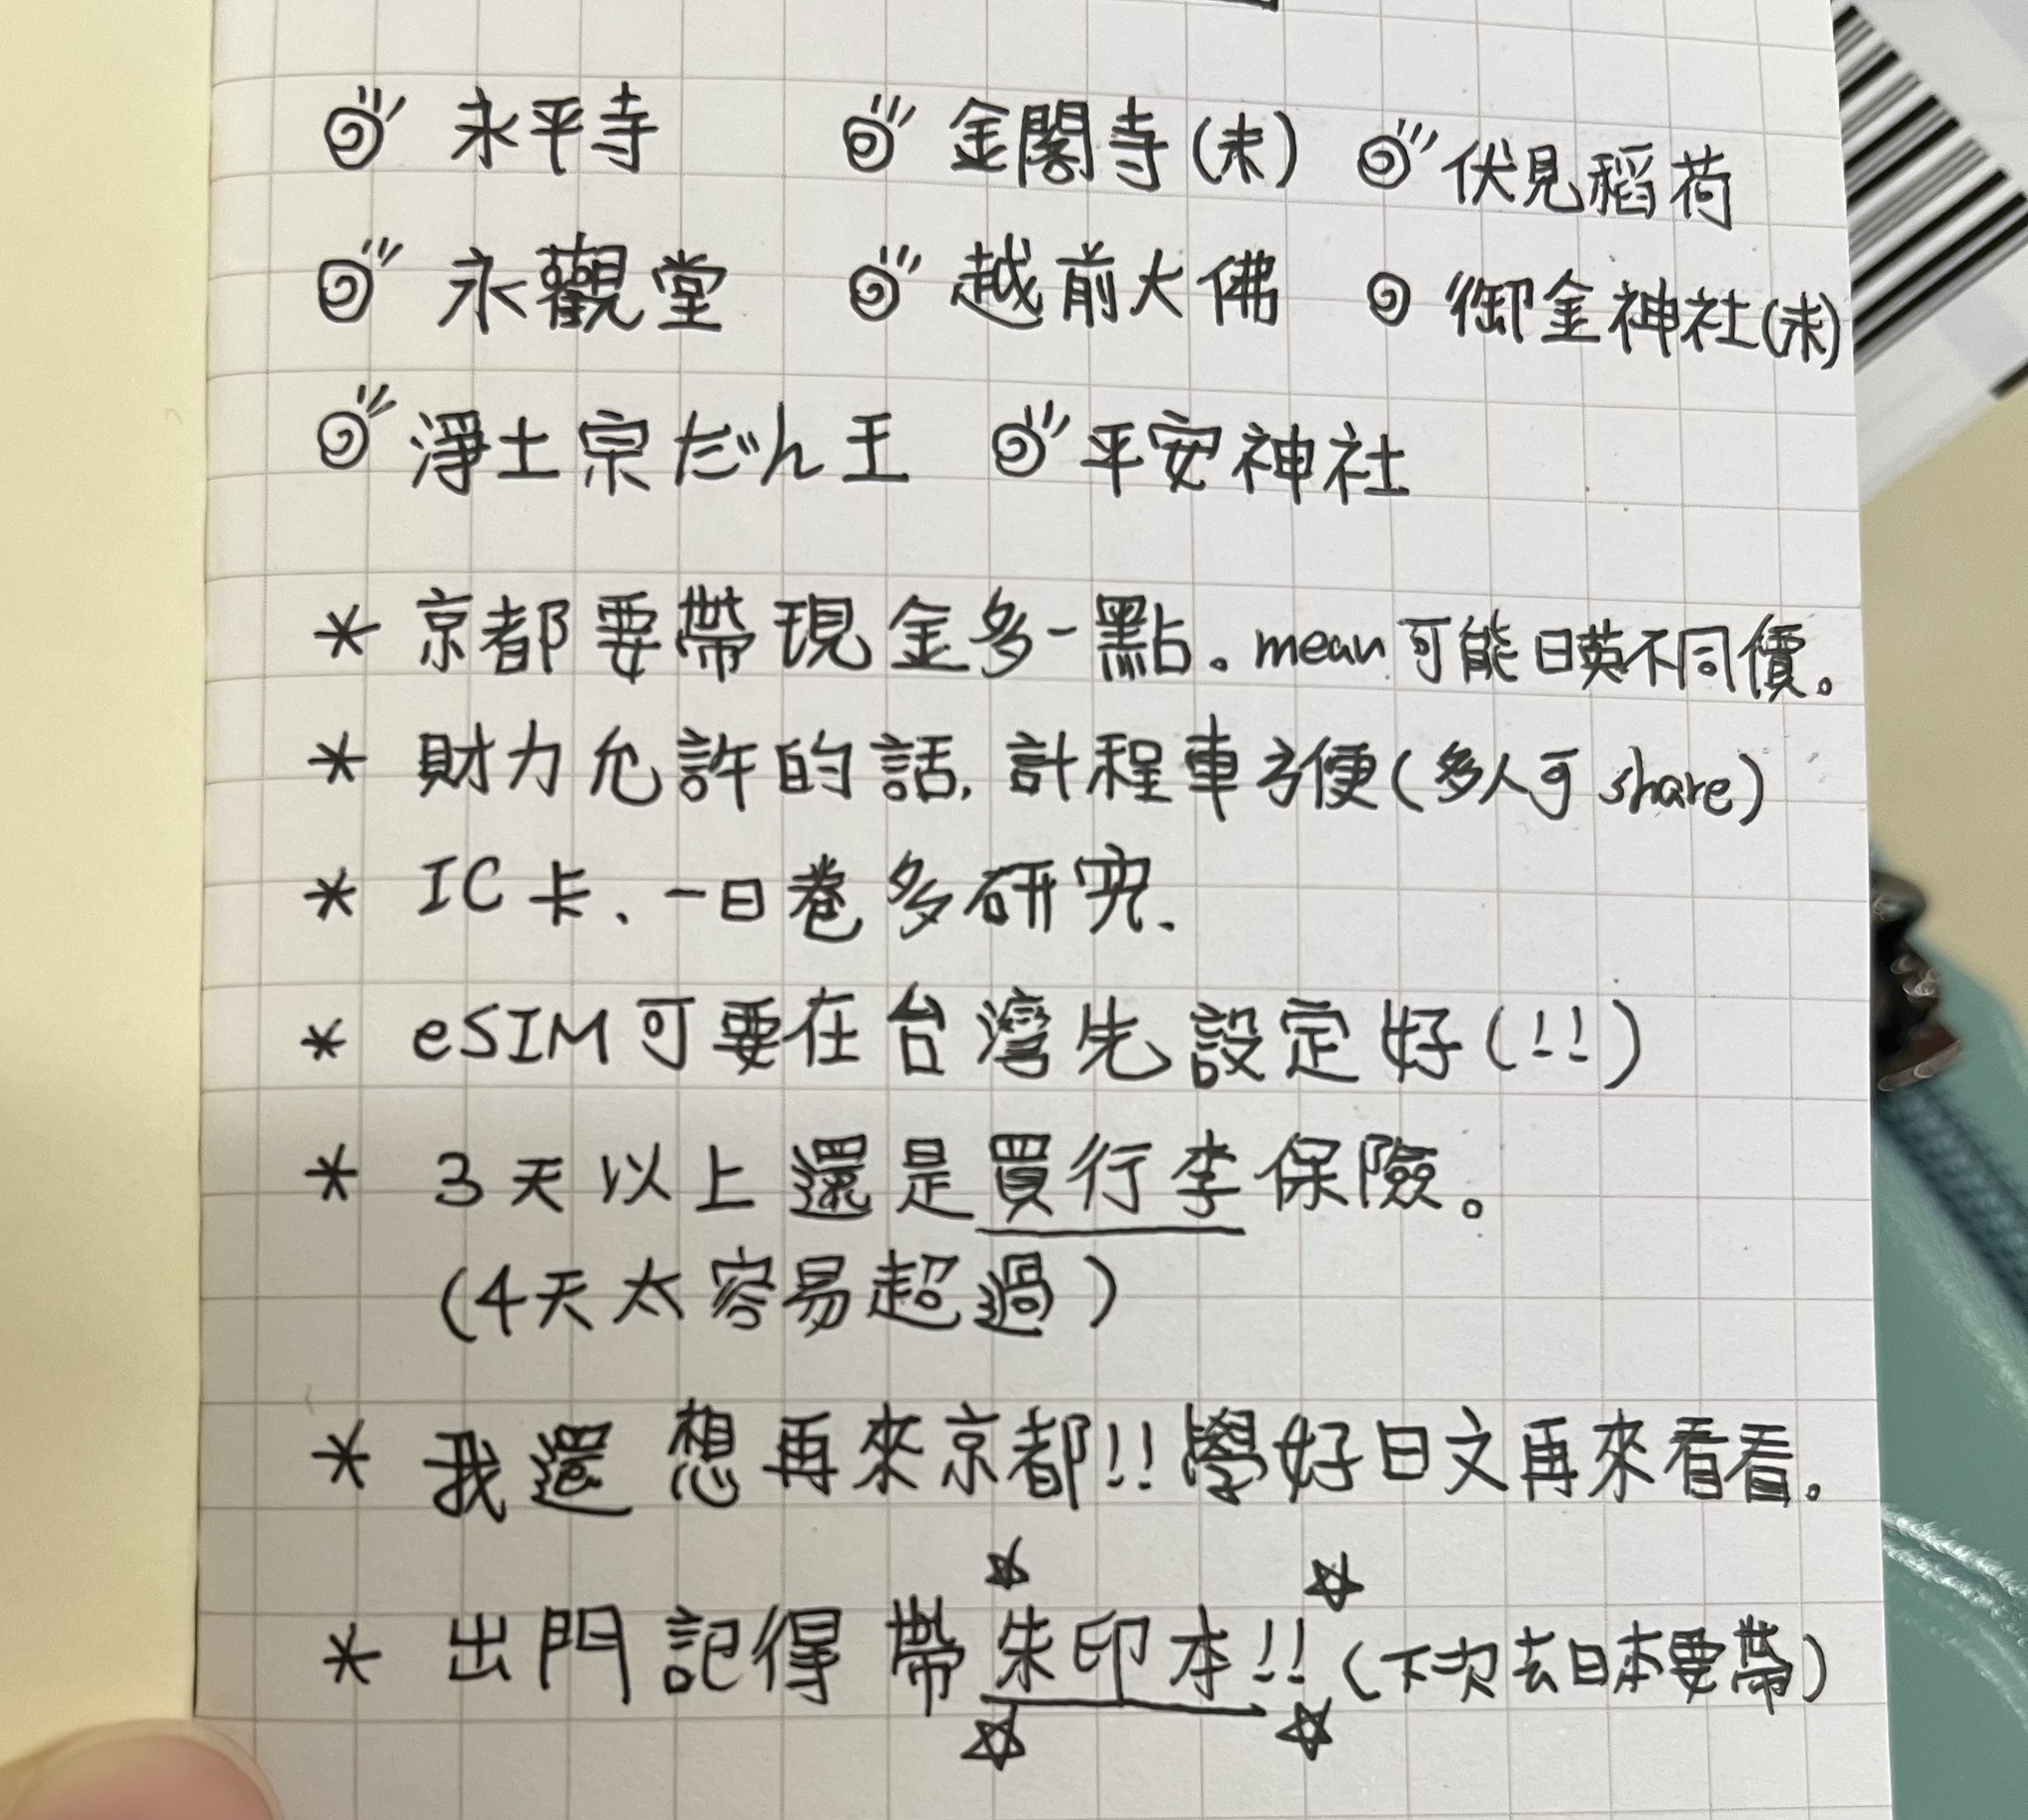 永平寺 金閣寺(未) 伏見稻荷
永觀堂 越前大佛 御金神社(未)
淨土宗だん王 平安神社
* 京都要帶現金多一點。mean可能日英不同價。
* 財力允許的話,計程車方便(多人可share)
* IC卡、一日卷多研究.
* eSIM可要在台灣先設定好(!!)
* 3天以上還是買行李保險。
(4天太容易超過)
* 我還想再來京都!!學好日文再來看看。
* 出門記得帶朱印本!!(下次去日本要帶)